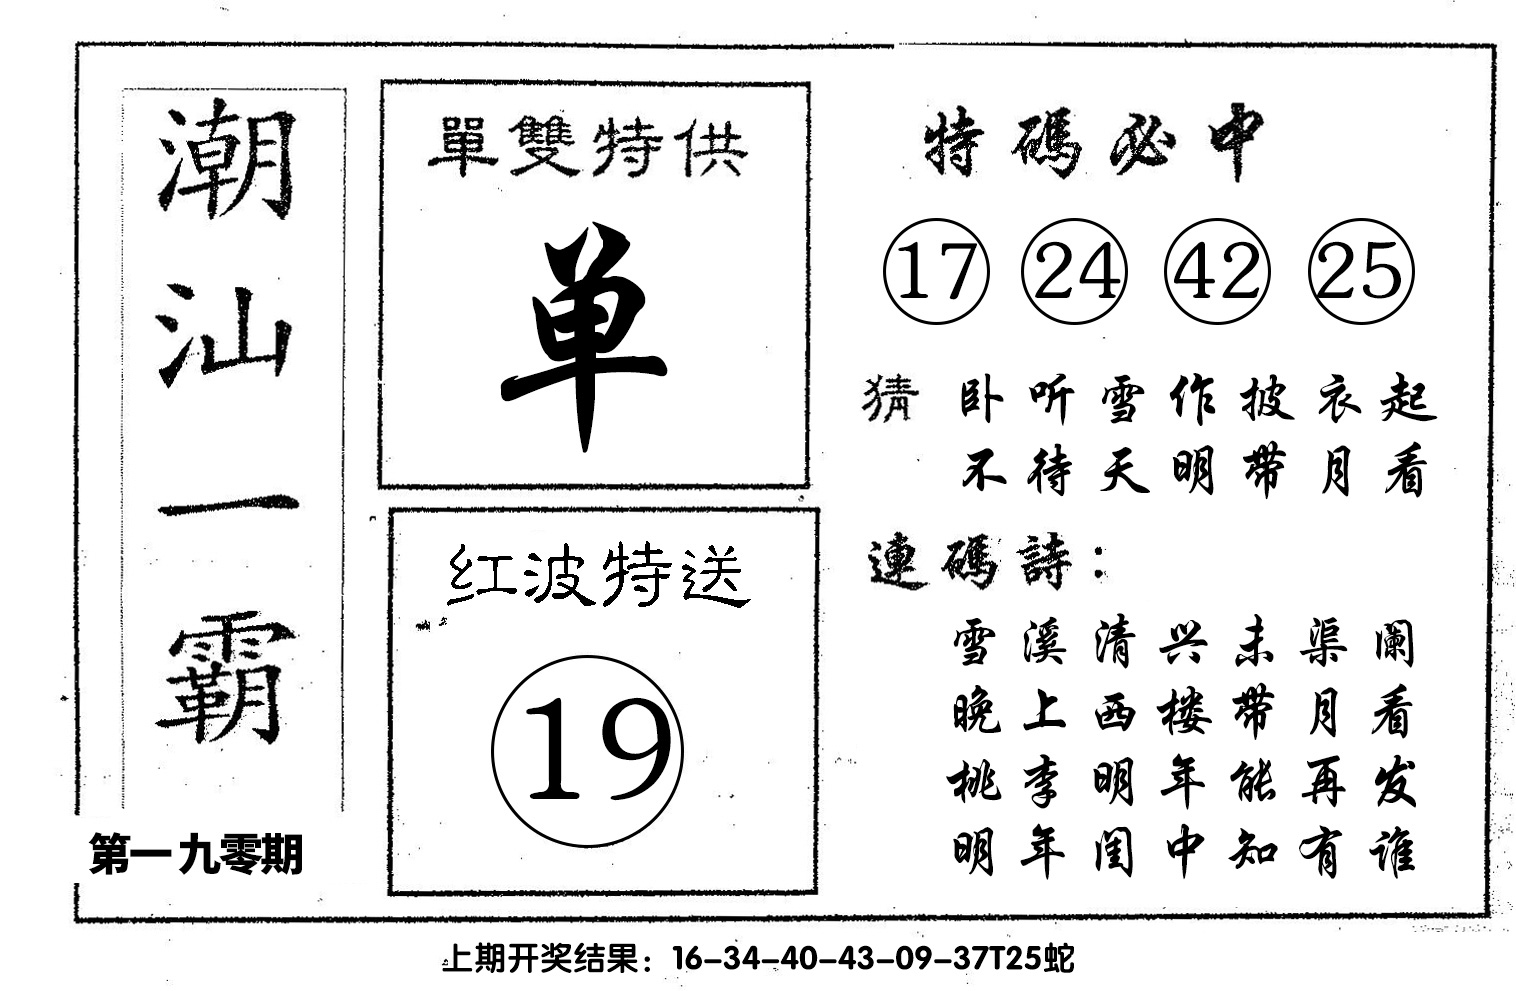 潮汕一霸
第一九零期
單雙特供
单
红波特送
19
特碼必中
17 24 42 25
猜 卧听雪作披衣起
不待天明带月看
連碼詩：
雪溪清兴未渠阑
晚上西楼带月看
桃李明年能再发
明年闺中知有谁
上期开奖结果：16-34-40-43-09-37T25蛇